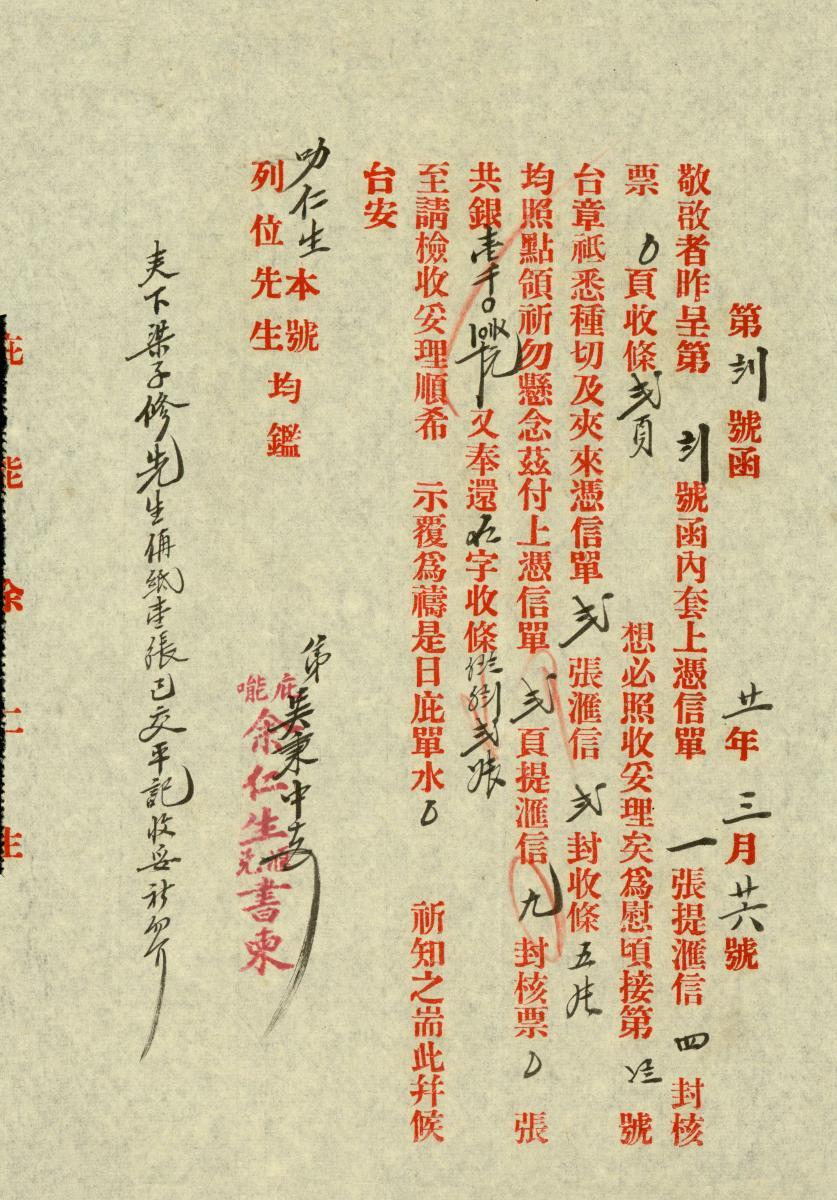 第 號函 廿年三月廿六號
敬啟者昨呈第 號函內套上憑信單一張提滙信四封核
票0頁收條弍頁 想必照收妥理矣為慰頃接第 號
台章祗悉種切及夾來憑信單弍張滙信弍封收條五張
均照點領祈勿懸念茲付上憑信單弍頁提滙信九封核票0張
共銀壹千0 又奉還 字收條 弍張
至請檢收妥理順希 示覆為禱是日庇單水0 祈知之耑此幷候
台安
叻仁生本號
列位先生均鑑
弟吳東中
庇能余仁生滙兌書柬
夫下梁子修先生 紙壹張已交平記收妥祈勿介
庇能余仁生